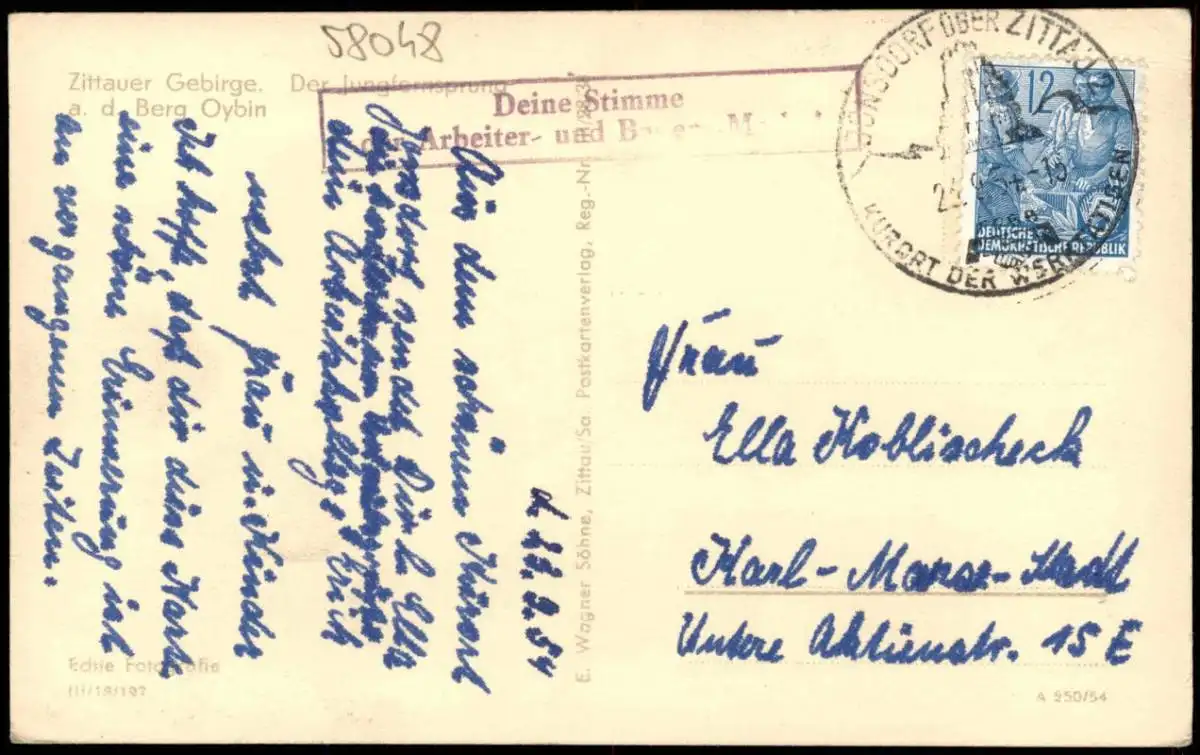 58048
Zittauer Gebirge. Der Jungfernsprung
a. d. Berg Oybin
Deine Stimme
der Arbeiter- und
JONSDORF ÜBER ZITTAU 2
KURORT DER WERKTÄTIGEN
12
DEUTSCHE
DEMOKRATISCHE REPUBLIK
d. 22.9.54
Aus dem schönen Kurort
Jonsdorf sendet Dir l. Ella
die herzlichsten
dein Arbeitskollege Erich
nebst Frau u. Kinder
Ich hoffe, daß dir diese Karte
eine schöne Erinnerung ist
an vergangene Zeiten.
E. Wagner Söhne, Zittau/Sa. Postkartenverlag, Reg.-Nr.
Frau
Ella Koblischeck
Karl-Marx-Stadt
Untere Aktienstr. 15 E
Echte Fotografie
III/18/197
A 250/54